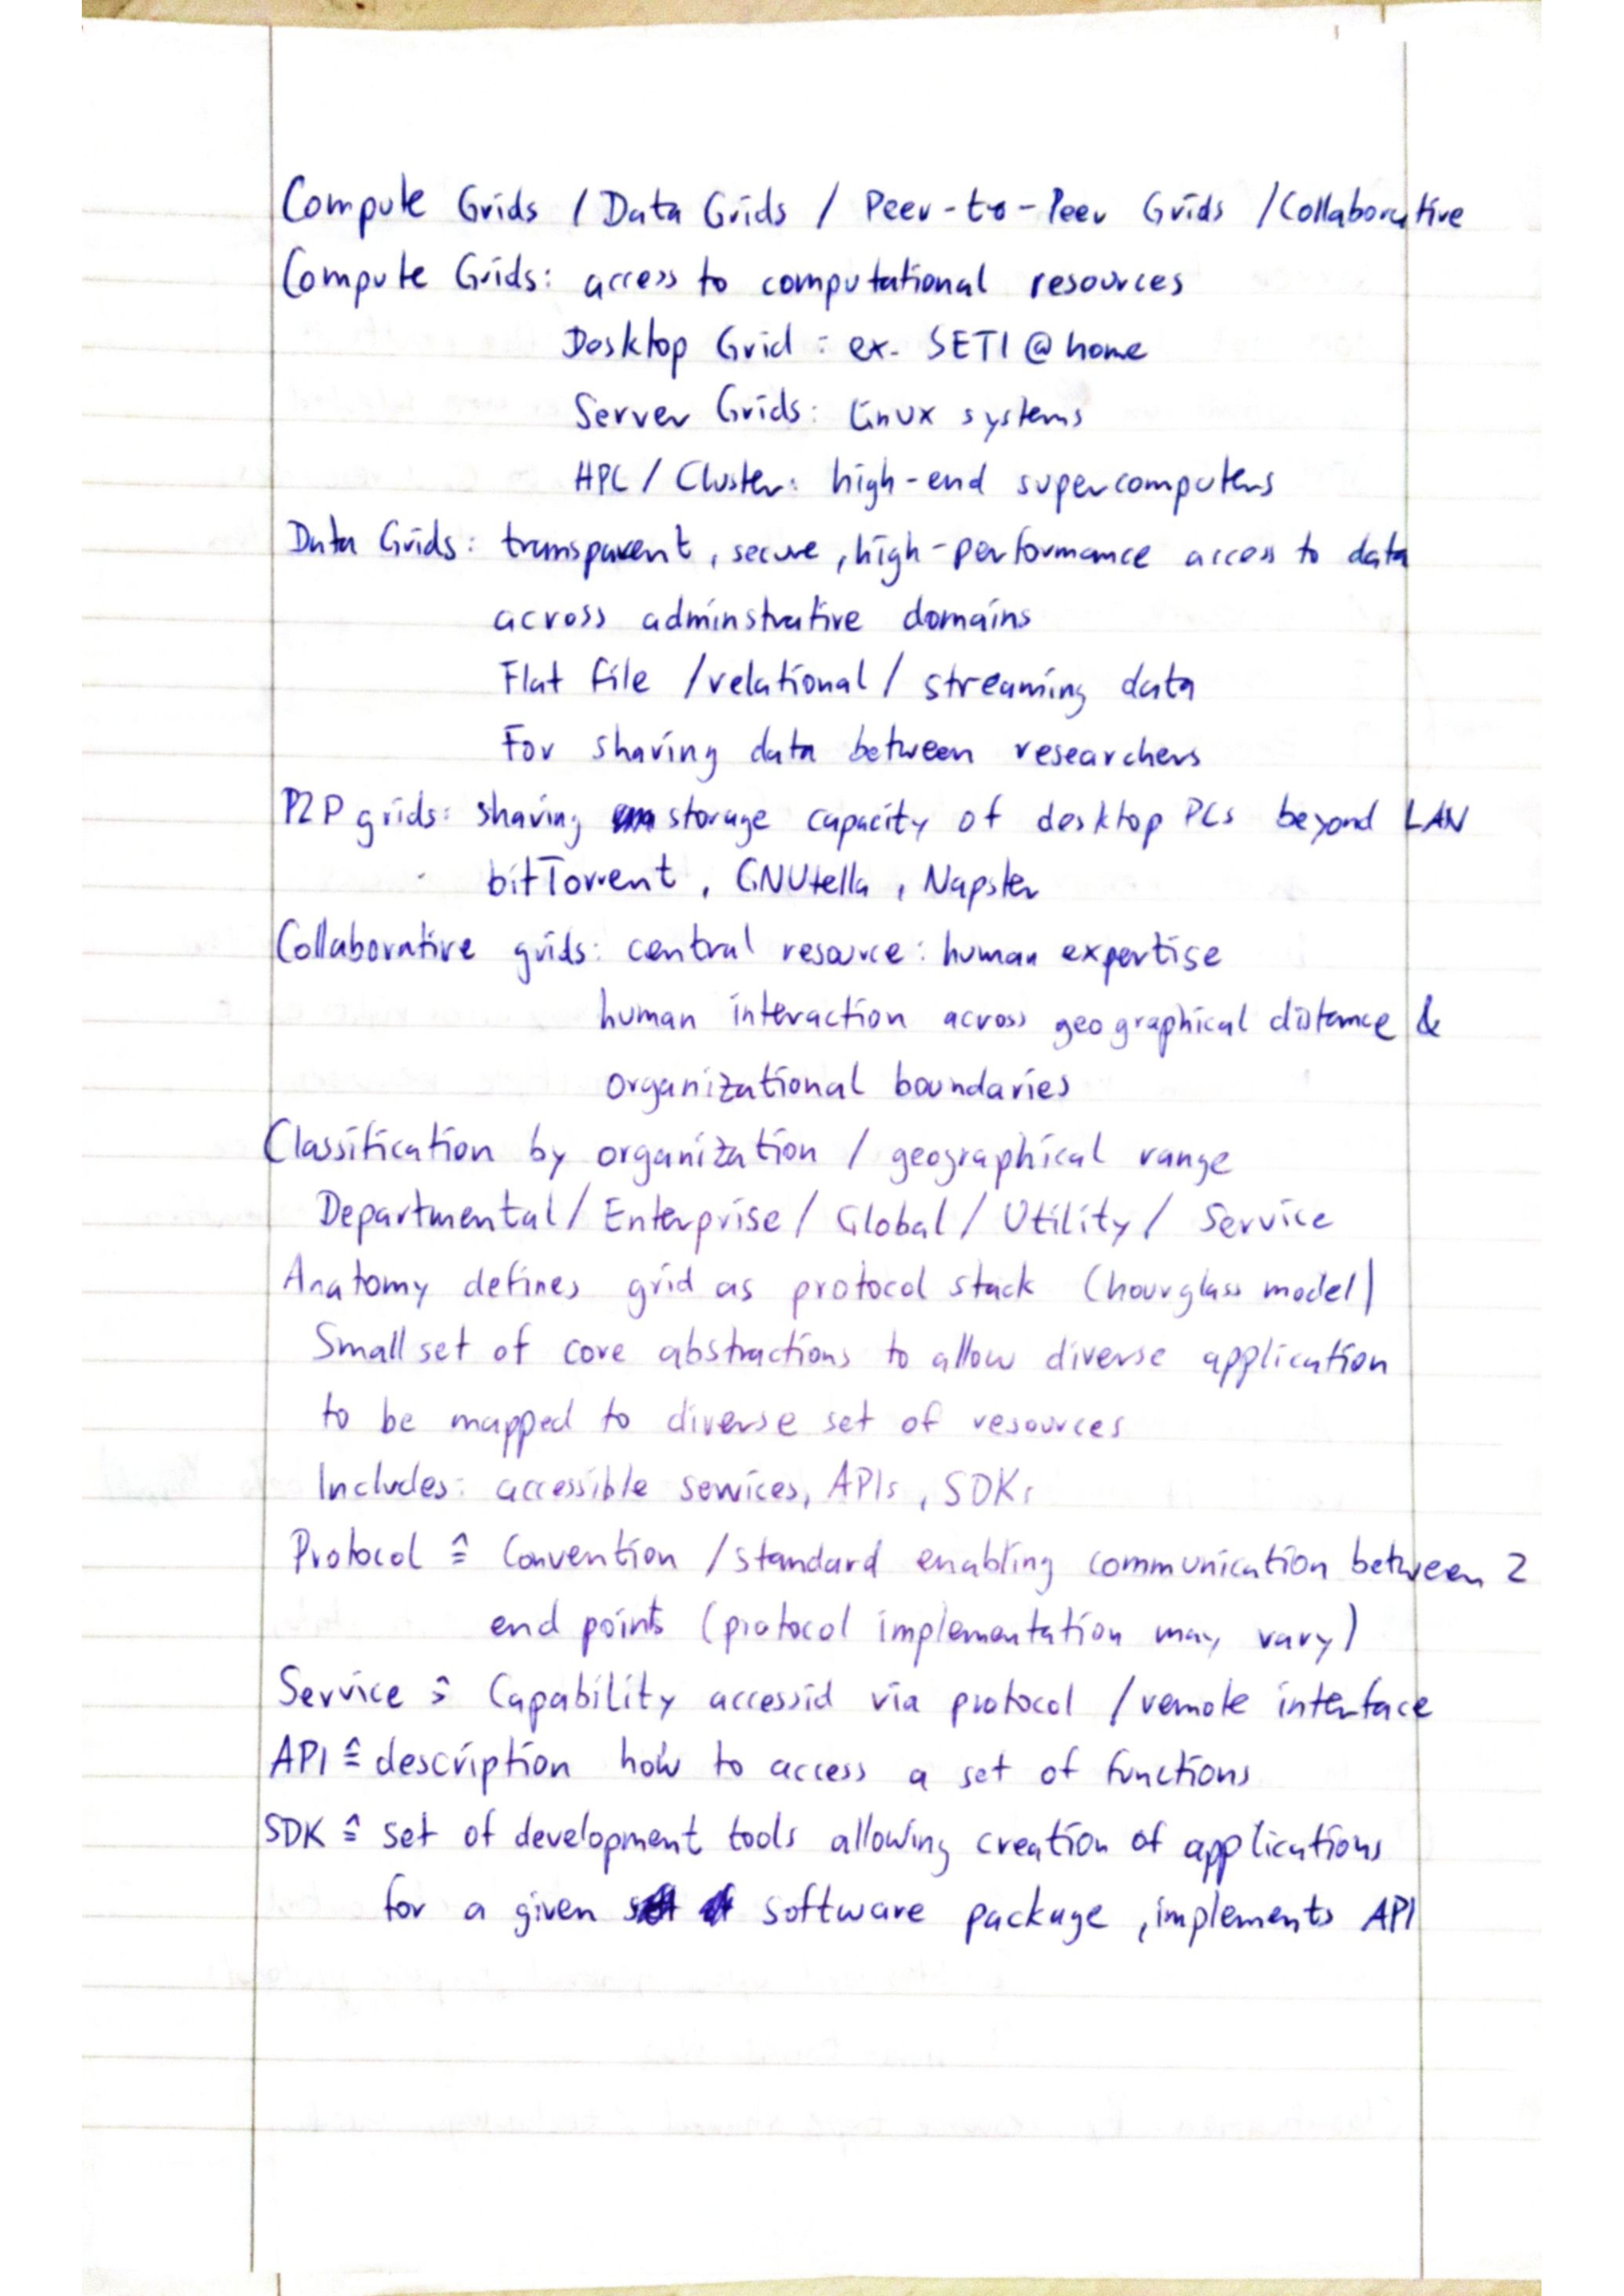 Compute Grids / Data Grids / Peer-to-Peer Grids / Collaborative
Compute Grids: access to computational resources
Desktop Grid: ex. SETI@home
Server Grids: linux systems
HPC / Cluster: high-end supercomputers
Data Grids: transparent, secure, high-performance access to data
across adminstrative domains
Flat file / relational / streaming data
For sharing data between researchers
P2P grids: sharing storage capacity of desktop PCs beyond LAN
bitTorrent, GNUtella, Napster
Collaborative grids: central resource: human expertise
human interaction across geographical distance &
organizational boundaries
Classification by organization / geographical range
Departmental / Enterprise / Global / Utility / Service
Anatomy defines grid as protocol stack (hourglass model)
Small set of core abstractions to allow diverse application
to be mapped to diverse set of resources
Includes: accessible services, APIs, SDKs
Protocol ≙ Convention / standard enabling communication between 2
end points (protocol implementation may vary)
Service ≙ Capability accessid via protocol / remote interface
API ≙ description how to access a set of functions
SDK ≙ set of development tools allowing creation of applications
for a given software package, implements API